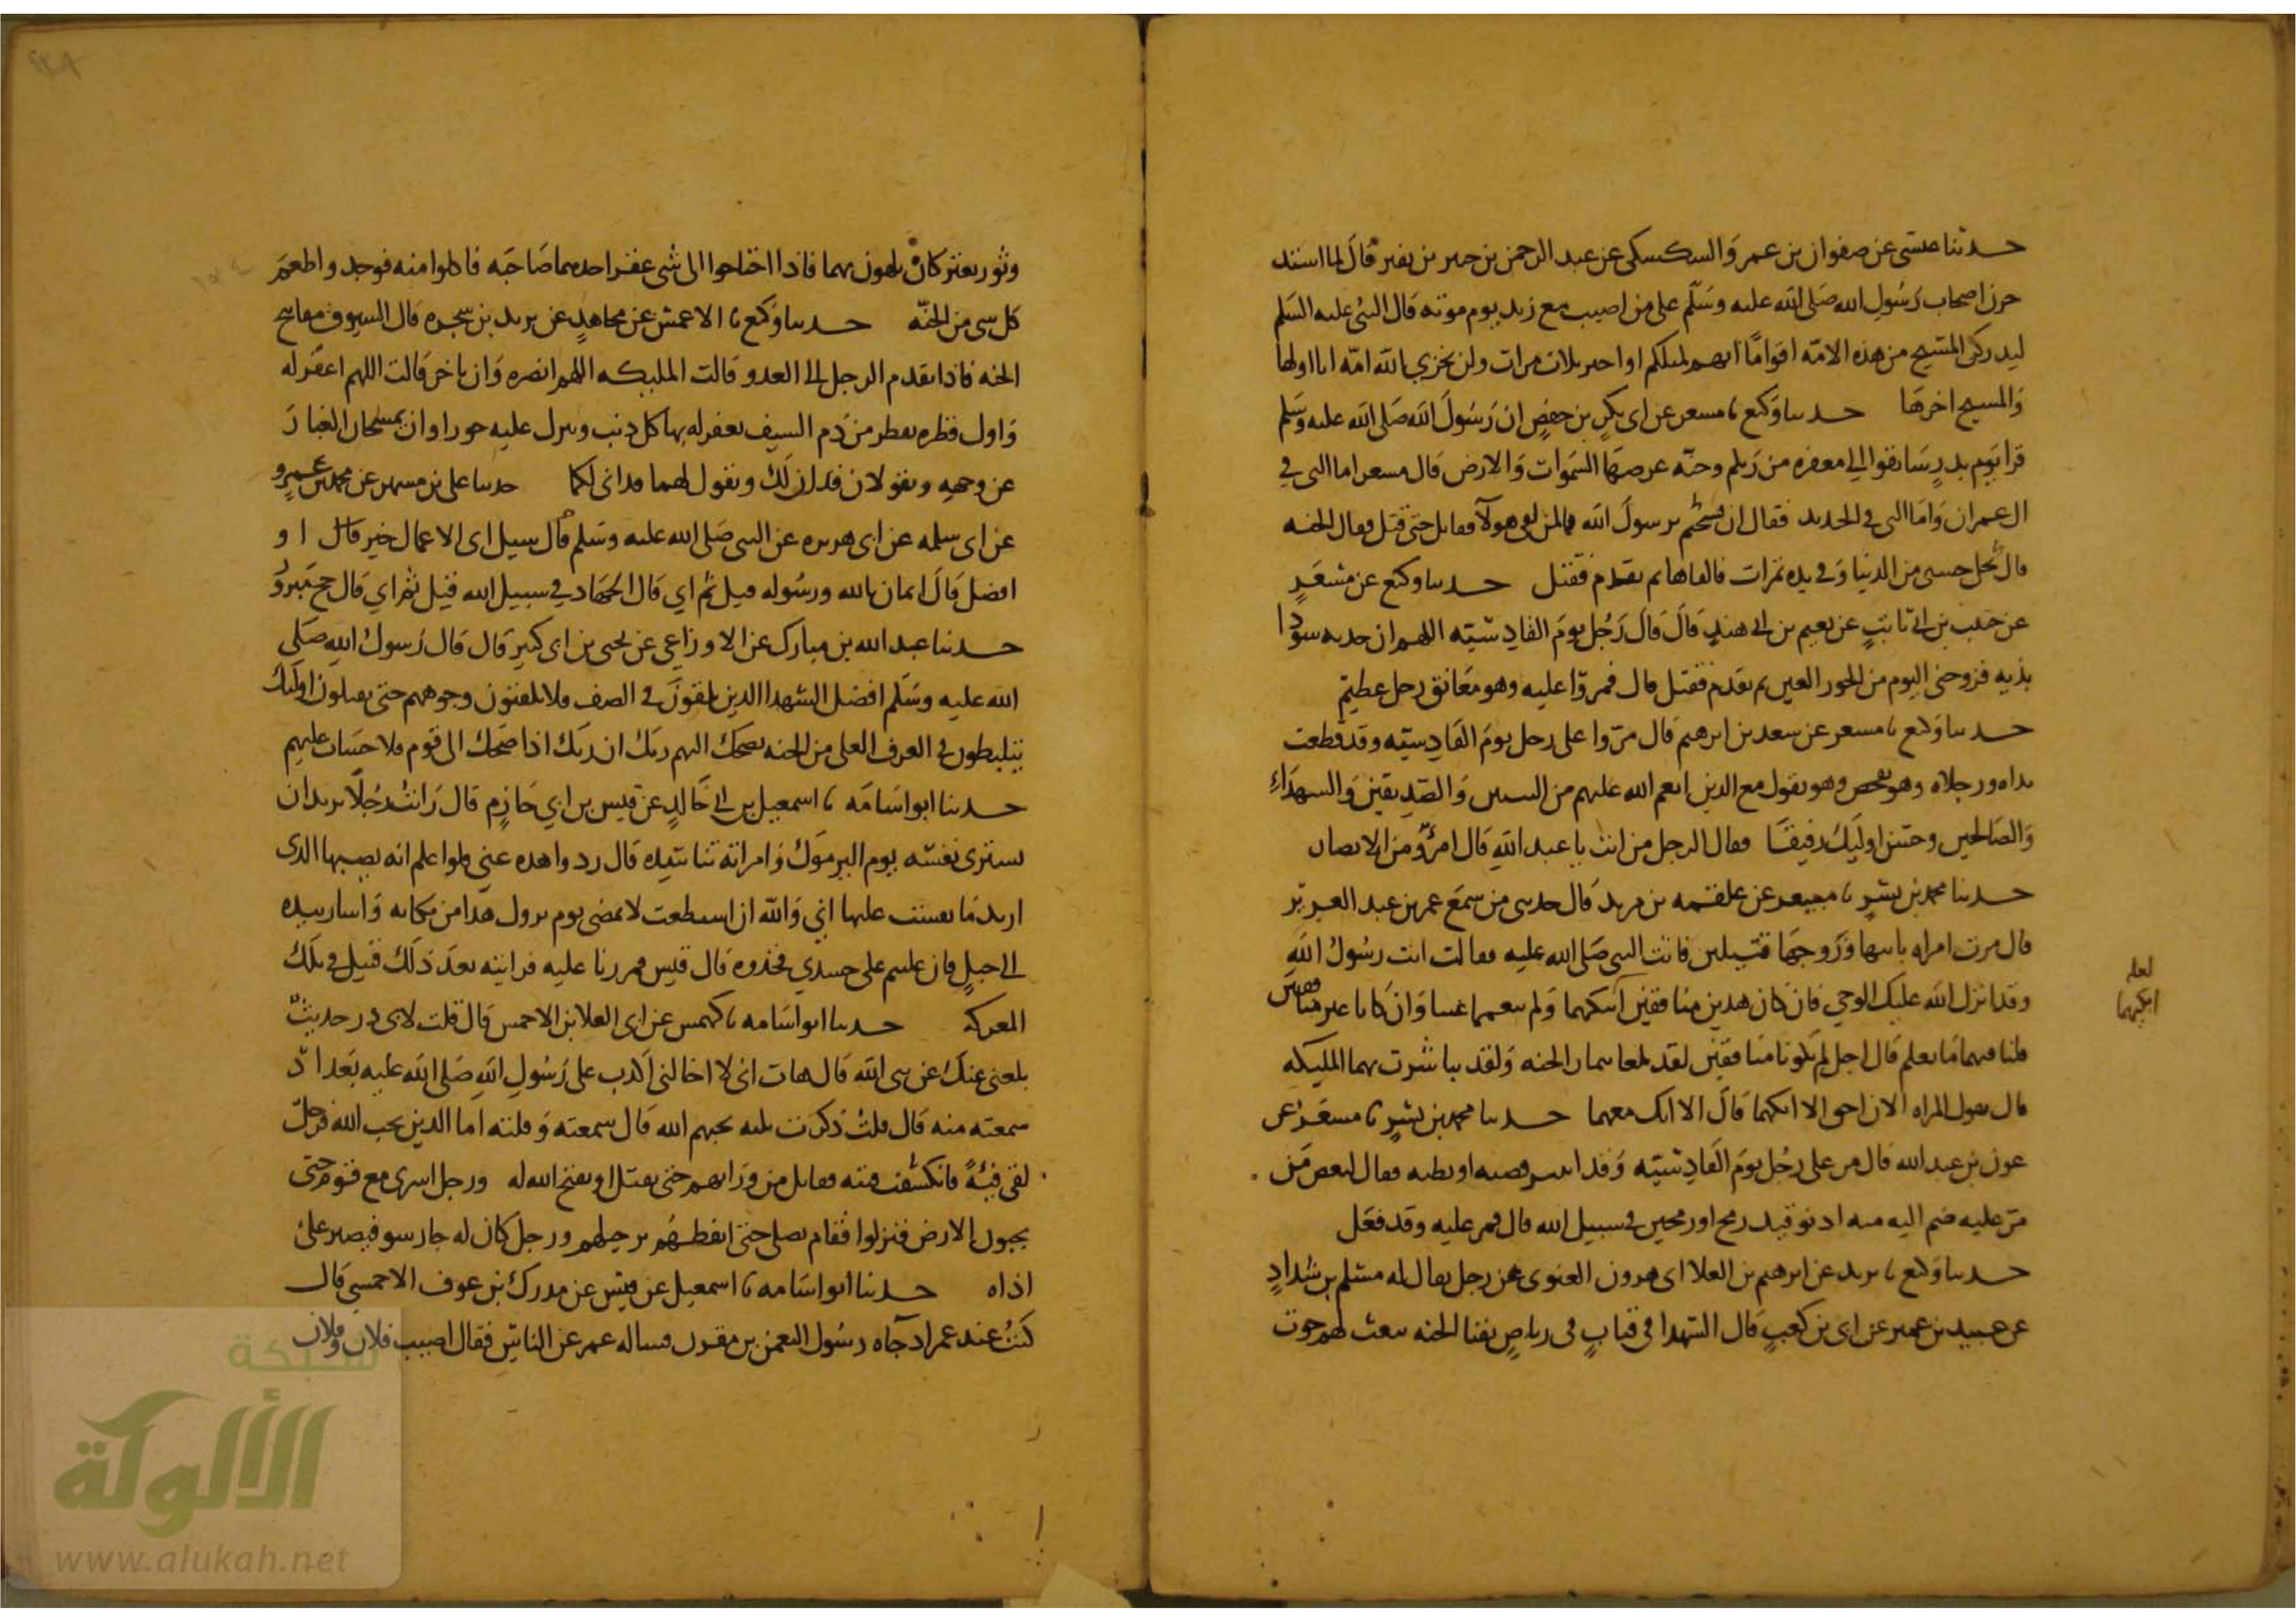 حدثنا عيسى عن صفوان بن عمرو السكسكى عن عبد الرحمن بن جبير بن نفير قال لما اشتد
حزن اصحاب رسول الله صلى الله عليه وسلم على من اصيب مع زيد يوم موته قال النبى عليه السلم
ليدركن المسيح من هذه الامه اقواما انهم لمثلكم او اخير ثلاث مرات ولن يخزي الله امه انا اولها
والمسيح اخرها حدثنا وكيع نا مسعر عن ابى بكر بن حفص ان رسول الله صلى الله عليه وسلم
قرا يوم بدر سابقوا الى مغفره من ربكم وجنه عرضها السموات والارض قال مسعر اما التى في
ال عمران واما التى في الحديد فقال ابن قسحم يرسول الله مالمن لقى هولا فقاتل حتى قتل فقال الجنه
قال بخل حسبى من الدنيا وفي يده تمرات فالقاها ثم تقدم فقتل حدثنا وكيع عن مسعر
عن حبيب بن ابي ثابت عن نعيم بن ابي هند قال قال رجل يوم القادسيه اللهم ان حديه سودا
بذيه فزوجنى اليوم من الحور العين ثم تقدم فقتل قال فمروا عليه وهو معانق رجل عظيم
حدثنا وكيع نا مسعر عن سعد بن ابرهيم قال مروا على رجل يوم القادسيه وقد قطعت
يداه ورجلاه وهو يفحص وهو يقول مع الذين انعم الله عليهم من النبيين والصديقين والشهداء
والصالحين وحسن اوليك رفيقا فقال الرجل من انت يا عبد الله قال امرؤ من الانصار
حدثنا محمد بن بشر نا مسعر عن علقمه بن مرثد قال حدثنى من سمع عمر بن عبد العزيز
قال مرت امراه بابنها وزوجها قتيلين فاتت النبى صلى الله عليه فقالت انت رسول الله
وقد انزل الله عليك الوحي فان كان هذين منافقين ابكيهما ولم ننعمهما عينا وان كانا غير منافقين
قلنا فيهما ما نعلم قال اجل لم يكونا منافقين لقد تلقيا ثمار الجنه ولقد تباشرت بهما المليكه
قال تقول المراه الان احق الا ابكيهما قال الا انك معهما حدثنا محمد بن بشر نا مسعر عن
عون بن عبد الله قال مر على رجل يوم القادسيه وقد انتثر قصبه او بطنه فقال لبعض من
مر عليه ضم اليه منه ادنو قيد رمح او رمحين في سبيل الله قال فمر عليه وقد فعل
حدثنا وكيع نا يزيد عن ابرهيم بن العلا ابى هرون الغنوى عن رجل يقال له مسلم بن شداد
عن عبيد بن عمير عن ابى بن كعب قال الشهدا في قباب في رياض بفنا الجنه يبعث لهم حوت
لعله
ابكيهما
وثور يعتركان يلهون بهما فاذا احتاجوا الى شى عقر احدهما صاحبه فاكلوا منه فوجدوا طعم
كل شى من الجنه حدثنا وكيع نا الاعمش عن مجاهد عن يزيد بن شجره قال السيوف مفاتيح
الجنه فاذا تقدم الرجل الى العدو قالت المليكه اللهم انصره وان تاخر قالت اللهم اغفر له
واول قطره تقطر من دم السيف يغفر له بها كل ذنب وينزل عليه حوراوان يمسحان الغبار
عن وجهه ويقولان قد ان لك ويقول لهما قد انى لكما حدثنا على بن مسهر عن محمد بن عمرو
عن ابى سلمه عن ابى هريره عن النبى صلى الله عليه وسلم قال سيل اى الاعمال خير قال او
افضل قال ايمان بالله ورسوله قيل ثم اي قال الجهاد في سبيل الله قيل ثم اي قال حج مبرور
حدثنا عبد الله بن مبارك عن الاوزاعي عن يحى بن ابى كثير قال قال رسول الله صلى
الله عليه وسلم افضل الشهدا الذين يلقون في الصف فلا يلفتون وجوههم حتى يقتلون اوليك
يتلبطون في الغرف العلى من الجنه يضحك اليهم ربك ان ربك اذا ضحك الى قوم فلا حساب عليهم
حدثنا ابو اسامه نا اسمعيل بن ابي خالد عن قيس بن ابي حازم قال رايت رجلا يريد ان
يشترى نفسه يوم اليرموك وامراته تناشده قال ردوا هذه عنى فلوا علم انه يصيبها الذى
اريد ما نفست عليها اني والله ان استطعت لا تمضى يوم يزول هذا من مكانه واشار بيده
الى جبل فان غلبتم على جسدي فخذوه قال قيس فمررنا عليه فرايته بعد ذلك قتيل في تلك
المعركه حدثنا ابو اسامه نا كهمس عن ابى العلا بن الاحمس قال قلت لابى ذر حديث
بلغنى عنك عن نبى الله قال هات انى لا اخالنى اكذب على رسول الله صلى الله عليه بعد اذ
سمعته منه قال قلت ذكرت ثلثه يحبهم الله قال سمعته وقلته اما الذين يحب الله فرجل
لقى فيه فانكشفت فيته فقاتل من ورايهم حتى يقتل او يفتح الله له ورجل اسرى مع قوم حتى
يحبون الارض فنزلوا فقام يصلى حتى ايقظهم برحيلهم ورجل كان له جار سو فيصبر على
اذاه حدثنا ابو اسامه نا اسمعيل عن قيس عن مدرك بن عوف الاحمسي قال
كنت عند عمر اذ جاه رسول النعمن بن مقرن فساله عمر عن الناس فقال اصيب فلان وفلان
شبكة
الألوكة
www.alukah.net